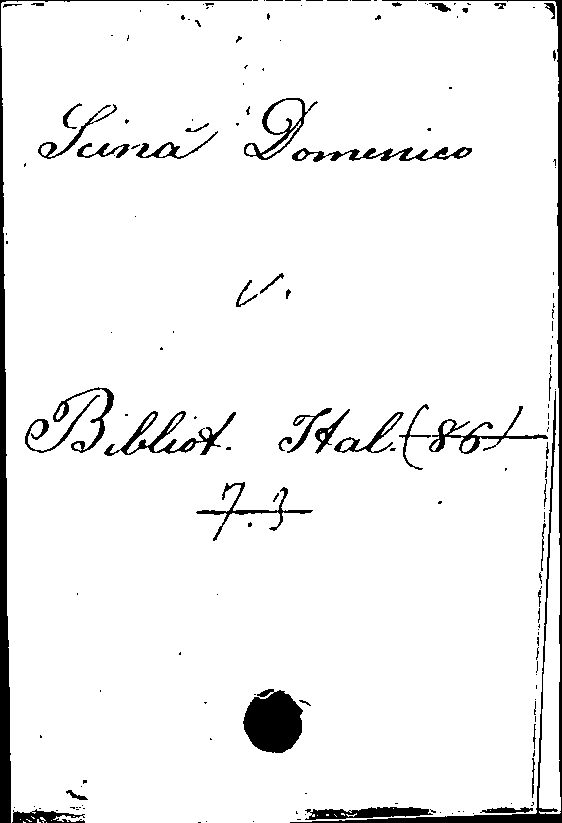 Scinà Domenico
V.
Bibliot. Ital. (86)
7.3